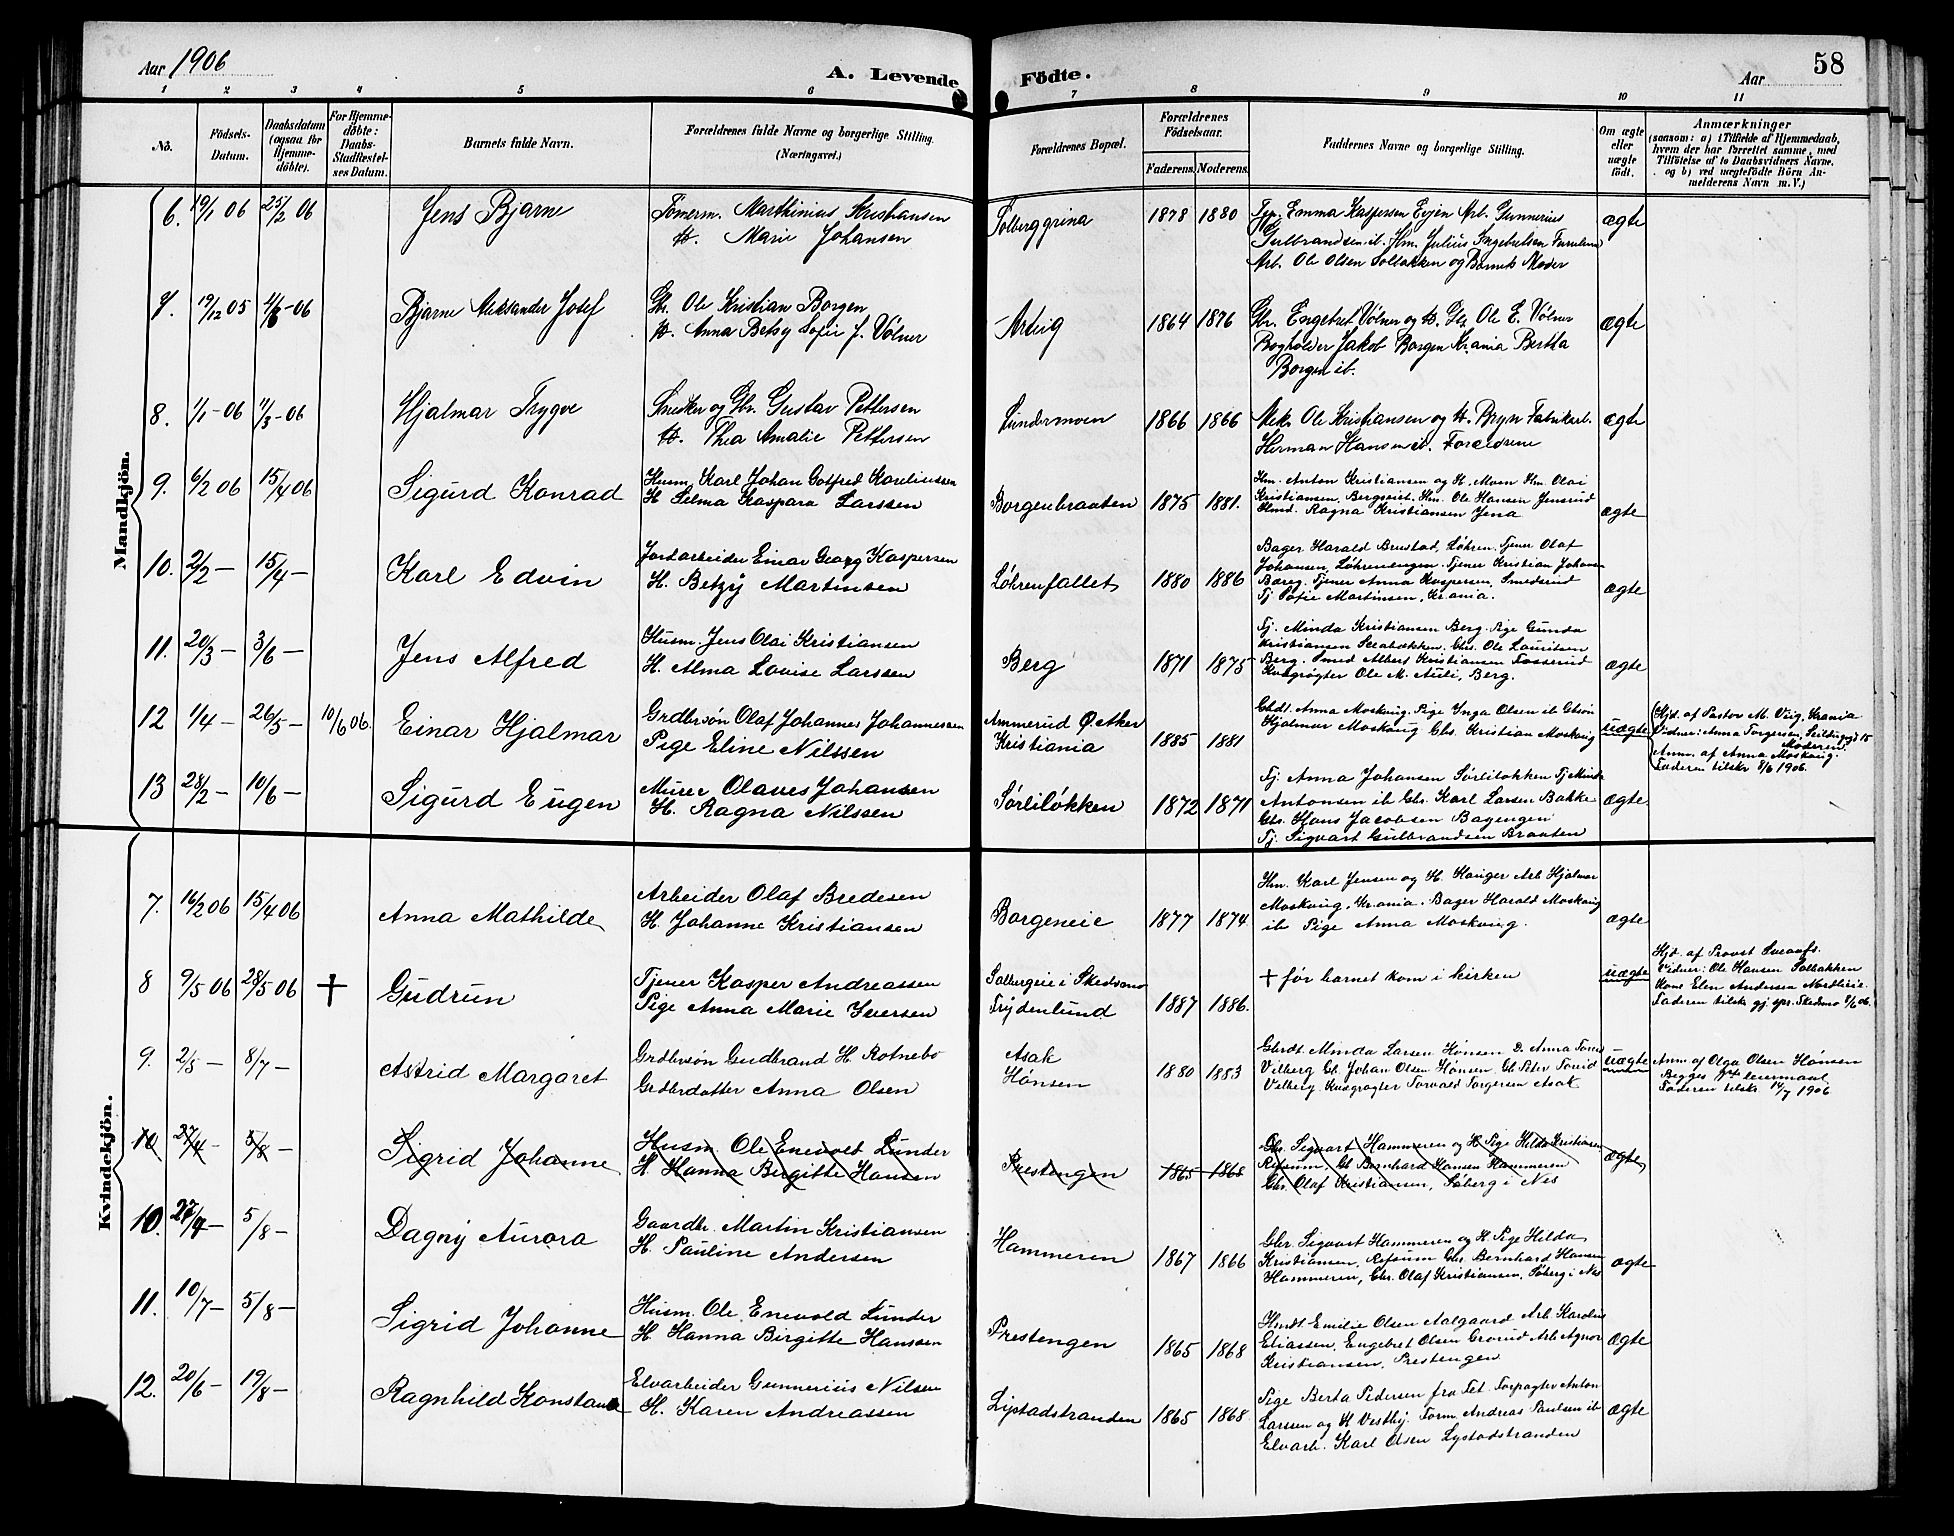 Aar 1906
A. Levende
Födte.
Aar
58
1 2 3 4 5 6 7 8 9 10 11
No.
Födsels-
Datum.
Daabsdatum
(ogsaa for
Hjemme-
döbte).
For Hjemme-
döbte:
Daabs-
Stadfæstel-
ses Datum.
Barnets fulde Navn.
Forældrenes fulde Navne og borgerlige Stilling.
(Næringsvei.)
Forældrenes Bopæl.
Forældrenes
Födselsaar.
Faderens. Moderens.
Faddernes Navne og borgerlige Stilling.
Om ægte
eller
uægte
födt.
Anmærkninger
(saasom: a) i Tilfælde af Hjemmedaab,
hvem der har forrettet samme, med
Tilföielse af to Daabsvidners Navne.
og b) ved uægtefödte Börn An-
melderens Navn m. V.)
Mandkjön.
6. 19/1 06 25/2 06
Jens Bjarne
Tømerm. Marthinius Kristiansen
H. Marie Johansen
Solberggrina
1878 1880
Tjp. Emma Kaspersen Evjen Arb. Gunnerius
Gulbrandsen ib. Hm. Julius Ingebretsen
Arb. Ole Olsen Solbakken og Barnets Moder
ægte
7. 19/12 05 4/3 - 06
Bjarne Aleksander Josef
Gbr. Ole Kristian Borgen
H. Anna Betsy Sofie J. Vølner
Arteig
1864 1876
Gbr. Engebret Vølner og H. Gbr. Ole E. Vølner
Bogholder Jakob Borgen Kr.ania Bertha
Borgen ib.
ægte
8. 1/1 - 06 11/3 - 06
Hjalmar Trygve
Snedker og Gbr. Gustav Pettersen
H. Thea Amalie Pettersen
Lundermoen
1866 1866
Mek. Ole Kristiansen og H. Bryn Fabrikarb.
Herman Hansen ib. Forældrene
ægte
9. 6/2 06 15/4 06
Sigurd Konrad
Husm. Karl Johan Gotfred Kareliussen
H. Selma Kaspara Larssen
Borgenbraaten
1875 1881.
Hm. Anton Kristiansen og H. Moen Hm. Olai
Kristiansen, Bergqvist. Hm. Ole Hansen Jensrud
Hmd. Ragna Kristiansen Jena
ægte
10. 2/2 - 15/4 -
Karl Edvin
Jordarbeider Einar Georg Kaspersen
H. Betzy Martinsen
Løhrenfallet
1880 1886
Bager Harald Brustad, Løhren. Tjener Olaf
Johansen, Løhrenengen. Tjener Kristian Johansen
Boreg. Tjener Anna Kaspersen, Smedsrud
Tj. Sofie Martinsen, Kr.ania.
ægte
11. 20/3 - 3/6 -
Jens Alfred
Husm. Jens Olai Kristiansen
H. Alma Lovise Larssen
Berg
1871 1875
Tj. Minda Kristiansen Berg. Pige Gunda
Kristiansen. Gbr. Ole Lauritsen
Berg. Smed Albert Kristiansen Fosserud
Kvægrøgter Ole M. Auli, Berg.
ægte
12 1/4 - 26/5 - 10/6 06.
Einar Hjalmar
Grdbrsøn Olaf Johannes Johannessen
Pige Eline Nilssen
Ammerud Ø. Aker
Kristiania
1885 1881
Gbdt. Anna Moskaug. Pige Inga Olsen ib Gbsøn
Hjalmar Moskaug Gbr. Kristian Moskaug
uægte
Hjd. af Pastor M. Vüg, Kr.ania
Vidner: Anna Torgersen, Seildugsgd 15
Moderen.
Anm. af Anna Moskaug.
Faderen tilskr 8/6 1906.
13 28/2 - 10/6 -
Sigurd Eugen
Murer Olaves Johansen
H. Ragna Nilssen
Sørliløkken
1872 1871
Tj. Anna Johansen Sørliløkken Tj Minda
Antonsen ib Gbr. Karl Larsen Bakke
Gbr. Hans Jacobsen Bagengen
Tj. Sigvart Gulbrandsen Braaten
ægte
Kvindekjön.
7. 16/2 06 15/4 06
Anna Mathilde
Arbeider Olaf Bredesen
H. Johanne Kristiansen
Borgeneie
1877 1874.
Hm. Karl Jensen og H. Hauger Arb Hjalmar
Moskaug, Kr.ania. Bager Harald Moskaug
ib Pige Anna Moskaug.
ægte
8 9/5 06 28/5 06 †
Gudrun
Tjener Kasper Andreassen
Pige Anna Marie Iversen
Solbergeie i Skedsmo
Frydenlund
1887 1886.
† før barnet kom i kirken
uægte
Hjd. af Provst
Vidner: Ole Hansen Solbakken
Kone Elen Andersen
Faderen tilskr gj. spr. Skedsmo 8/6 06.
9. 2/5 - 8/7 -
Astrid Margaret
Grdbrsøn Gudbrand H. Rotnebo
Grdbrdatter Anna Olsen
Asak
Hønsen
1880 1883
Gbrdt. Minda Larsen Hønsen D. Anna Torud
Vilberg Gb. Johan Olsen Hønsen. Gb. Peter Torud
Vilberg. Kvægrøgter Torvald Torgersen Asak
uægte
Anm. af Olga Olsen Hønsen
Begges 1ste leiermaal
Faderen tilskr. 14/7 1906
10 27/4 - 5/8 -
Sigrid Johanne
Husm. Ole Enevolt Lunder
H. Hanna Birgitte Hansen
Prestengen
1865 1868
Gbr. Sigvart Hammeren og H. Pige Hilda Kristiansen
Refsum, Gb Bernhard Hansen Hammeren
Gbr. Olaf Kristiansen, Søberg i Nes
ægte
10. 27/4 - 5/8 -
Dagny Aurora
Gaardbr. Martin Kristiansen
H. Pauline Andersen
Hammeren
1867 1866
Gbr. Sigvart Hammeren og H. Pige Hilda
Kristiansen, Refsum Gbr. Bernhard Hansen
Hammeren, Gbr. Olaf Kristiansen, Søberg i Nes
ægte
11. 10/7 - 5/8 -
Sigrid Johanne
Husm. Ole Enevold Lunder
H. Hanna Birgitte Hanssen
Prestengen
1865 1868
Hmdt. Emilie Olsen Aalgaard Arb. Karelius
Eliassen, Engebret Olsen Grorud Arb. Agnor
Kristiansen, Prestengen
ægte
12. 20/6 - 19/8 -
Ragnhild Konstanse
Elvarbeider Gunnerius Nilsen
H. Karen Andreassen
Lystadstranden
1865 1868.
Pige Berta Pedersen fra Fet. Forpagter Anton
Larsen og H Vestby. Form. Andreas Paulsen ib
Elvarb. Karl Olsen Lystadstranden
ægte